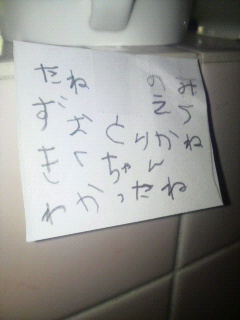 だね　のみ
ずおとりかね
きくちゃん
わかったね